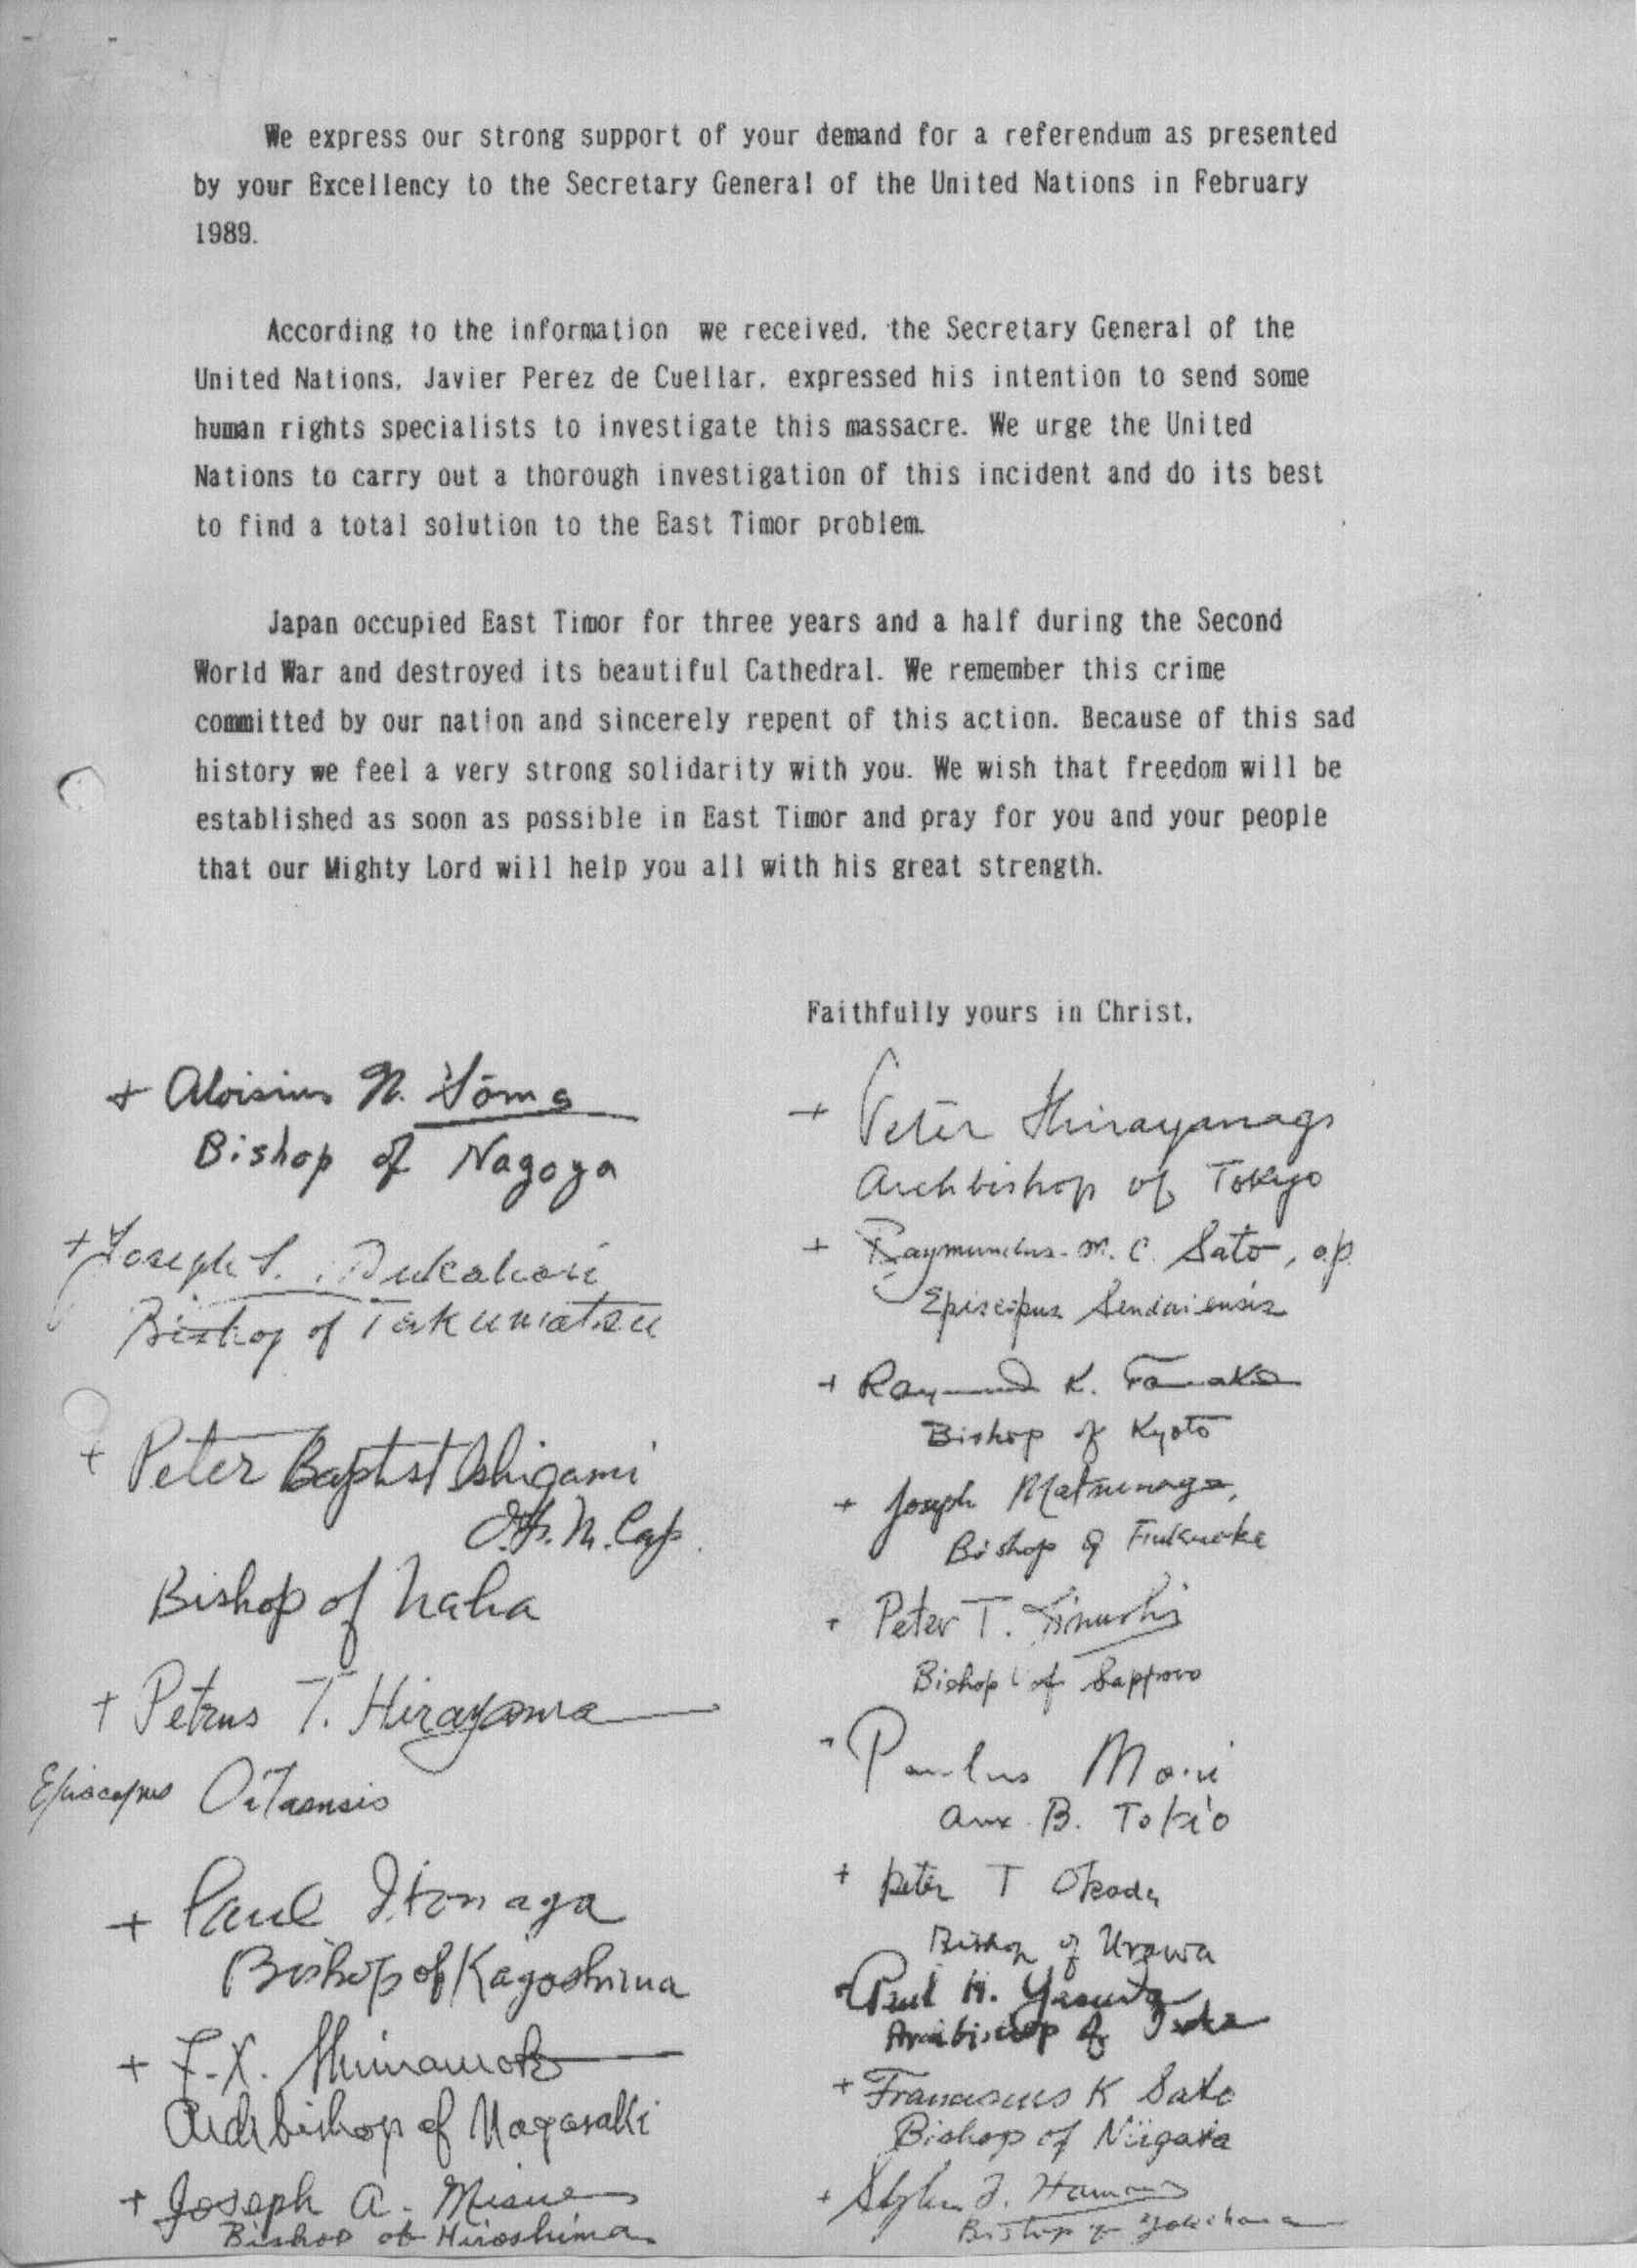 We express our strong support of your demand for a referendum as presented
by your Excellency to the Secretary General of the United Nations in February
1989.
According to the information we received, the Secretary General of the
United Nations, Javier Perez de Cuellar, expressed his intention to send some
human rights specialists to investigate this massacre. We urge the United
Nations to carry out a thorough investigation of this incident and do its best
to find a total solution to the East Timor problem.
Japan occupied East Timor for three years and a half during the Second
World War and destroyed its beautiful Cathedral. We remember this crime
committed by our nation and sincerely repent of this action. Because of this sad
history we feel a very strong solidarity with you. We wish that freedom will be
established as soon as possible in East Timor and pray for you and your people
that our Mighty Lord will help you all with his great strength.
Faithfully yours in Christ,
+ Aloisius N. Sōma
Bishop of Nagoya
+ Joseph S.
Bishop of Takamatsu
+ Peter Baptist Ishigami
O.F.M. Cap.
Bishop of Naha
+ Petrus T. Hirayama
Episcopus Oitaensis
+ Paul Itonaga
Bishop of Kagoshima
+ F.X. Shimamoto
Archbishop of Nagasaki
+ Joseph A. Misue
Bishop of Hiroshima
+ Peter Shirayanagi
Archbishop of Tokyo
+ Raymundus. M. C. Sato, o.p.
Episcopus Sendaiensis
+ Raymond K. Tanaka
Bishop of Kyoto
+ Joseph Matsunaga,
Bishop of Fukuoka
+ Peter T. Jinushi
Bishop of Sapporo
+ Paulus Mori
aux. B. Tokio
+ Peter T Okada
Bishop of Urawa
+ Paul H. Yasuda
Archbishop of Osaka
+ Franciscus K Sato
Bishop of Niigata
+ Hamao
Bishop of Yokohama